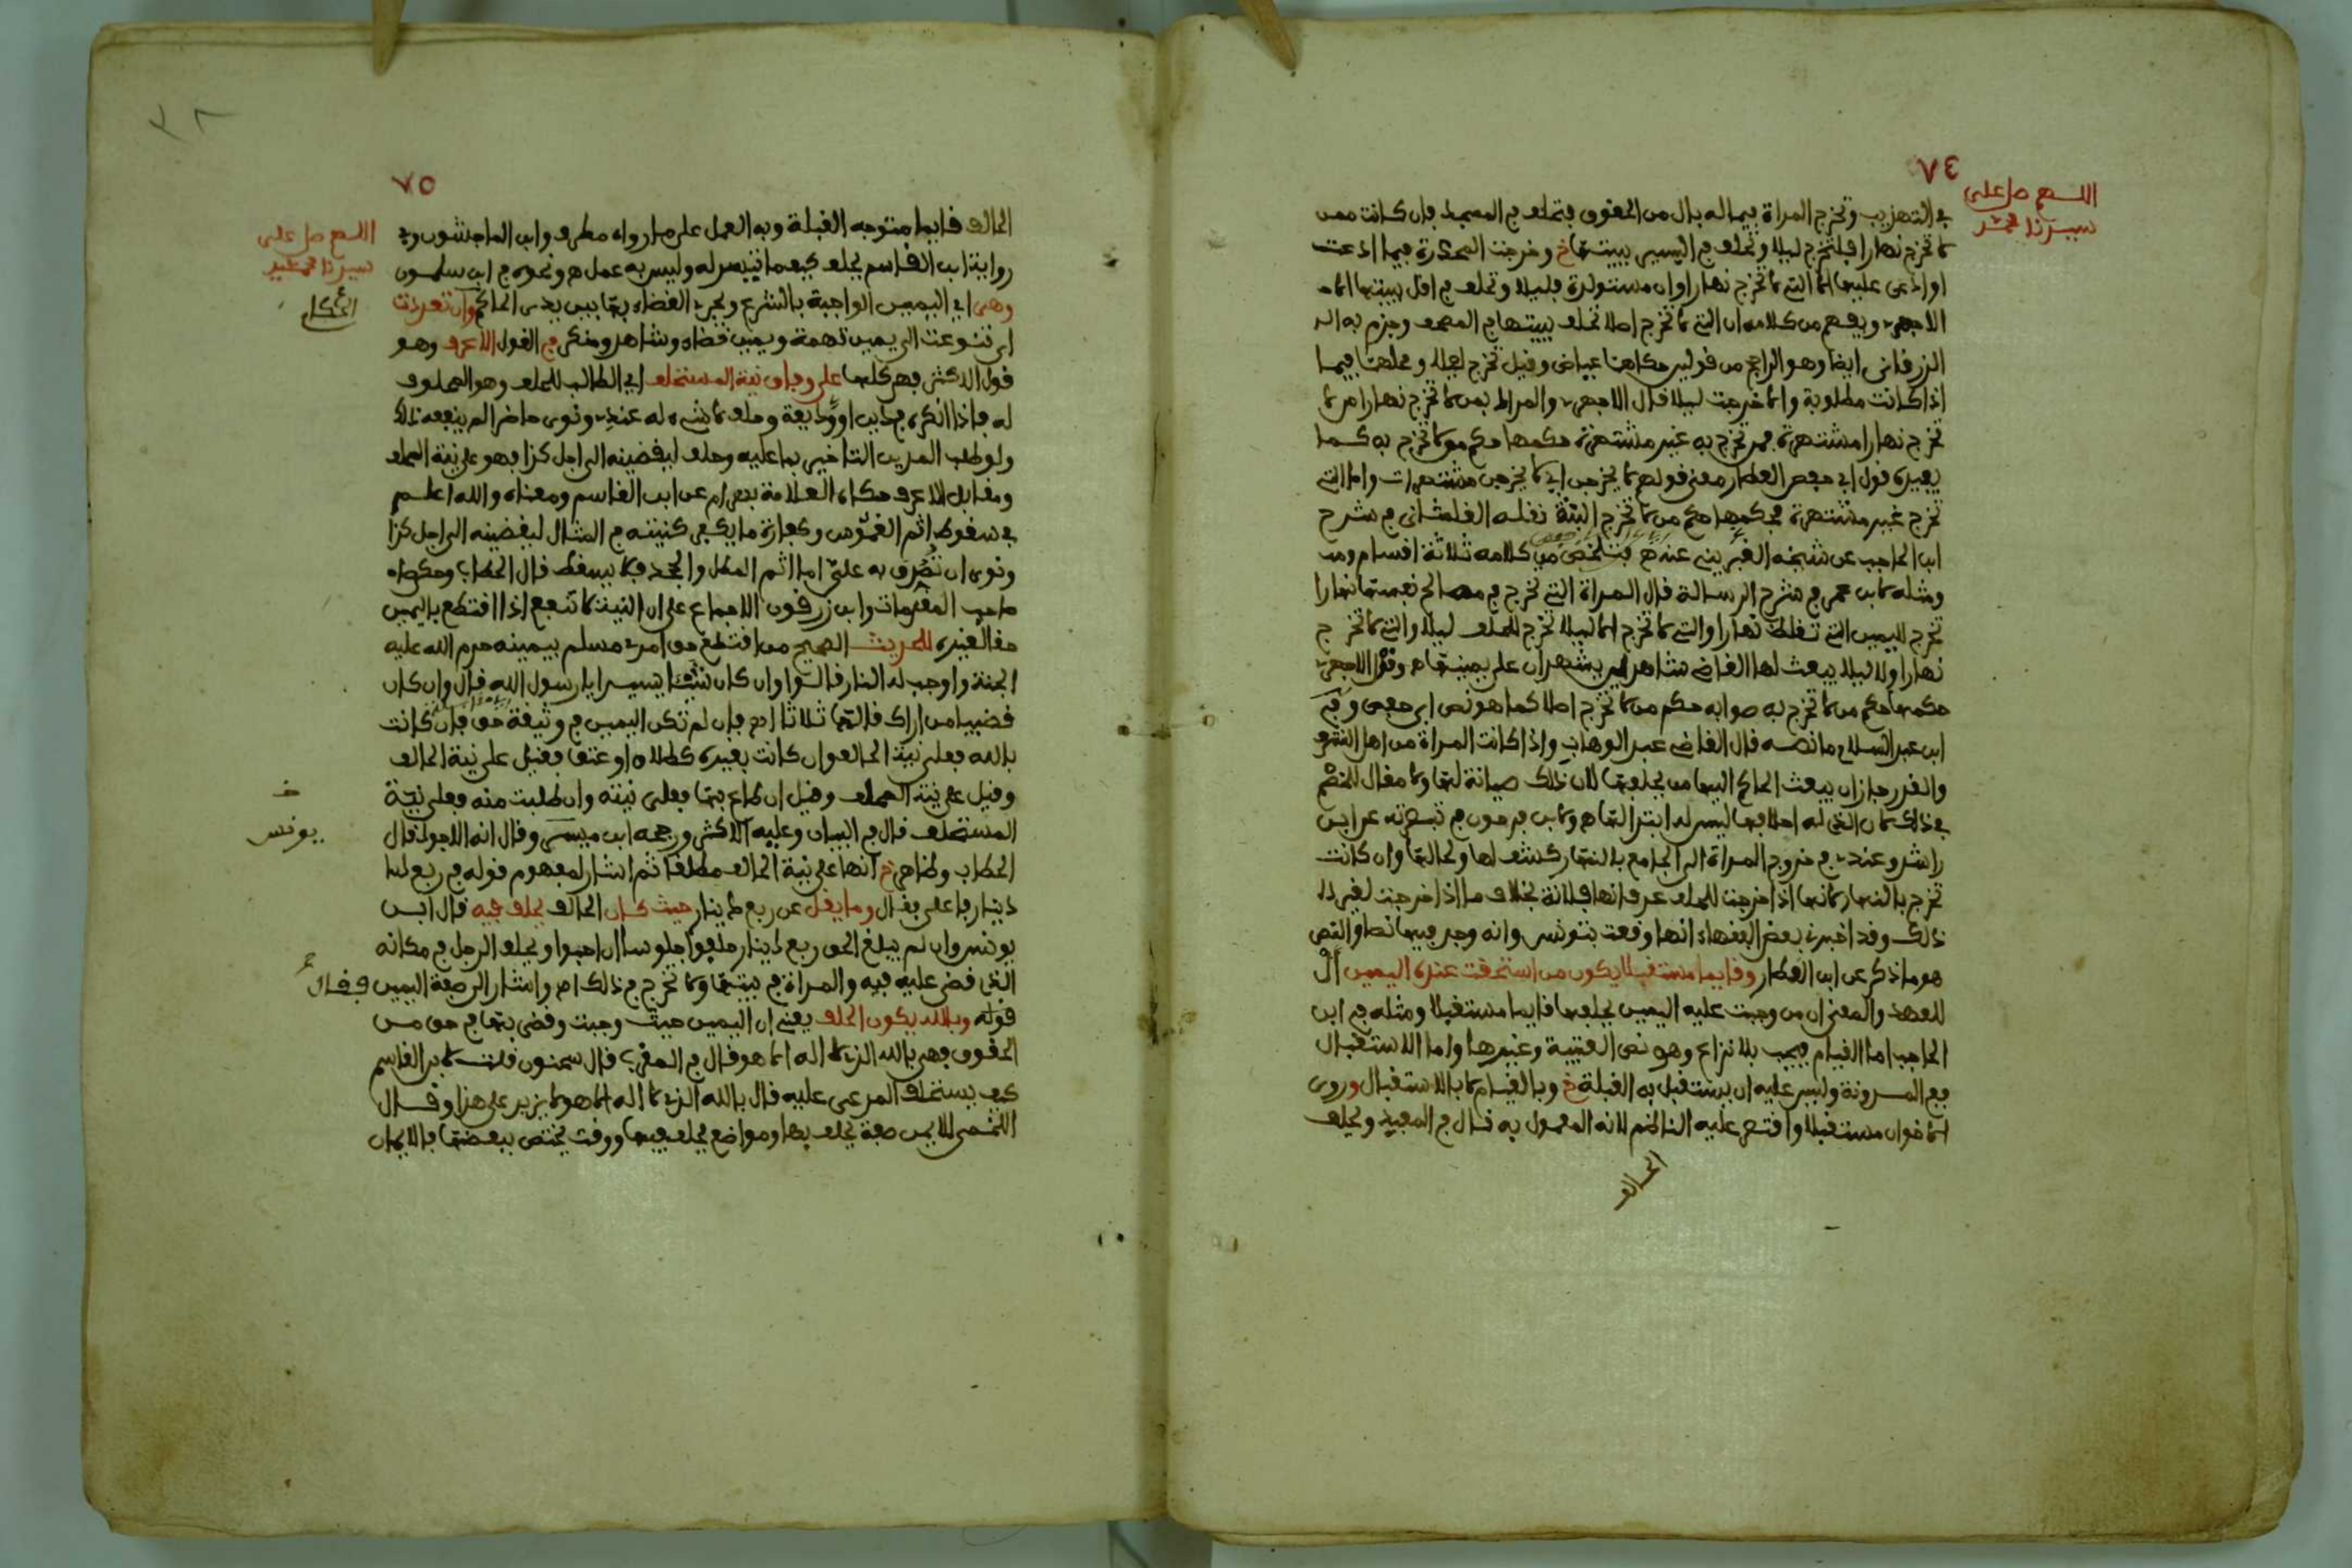 ٧٤
اللهم صل على
سيدنا محمد
في التهذيب وتخرج المراة فيما له بال من الحقوق فتحلف في المسجد فان كانت ممن
لا تخرج نهارا فلتخرج ليلا وتحلف في اليسير ببيتها خ وخرجت المخدرة فيما ادعت
او ادعى عليها الا التي لا تخرج نهارا وان مستولدة فليلا وتحلف في اقل ببيتها اهـ
الاجهوري ويفهم من كلامه ان التي لا تخرج اصلا تحلف ببيتها في المصحف وجزم به
الزرقاني ايضا وهو الراجح من قولين حكاهما عياض وقيل تخرج ليلا ومحلها فيما
اذا كانت مطلوبة والا خرجت ليلا قال الاجهوري والمراد بمن لا تخرج نهارا من لا
تخرج نهارا مشتهرة فمن تخرج به غير مشتهرة حكمها حكم من لا تخرج به كما
يفيده قول ابي حفص العطار معنى قولهم لا يخرجن اي لا يخرجن مشتهرات واما التي
تخرج غير مشتهرة فحكمها حكم من لا تخرج البتة نقله القلشاني في شرح
ابن الحاجب عن شيخه الغبريني عنه اهـ فتلخص من كلامه ثلاثة اقسام
ومثله لابن عمر في شرح الرسالة قال المراة التي تخرج في مصالح نفسها نهارا
تخرج لليمين التي تغلظ نهارا والتي لا تخرج الا ليلا تخرج للحلف ليلا والتي لا تخرج
نهارا ولا ليلا يبعث لها القاضي شاهدين يشهدان على يمينها اهـ وقول الاجهوري
حكمها حكم من لا تخرج به صوابه حكم من لا تخرج اصلا كما هو نص ابي حفص
ابن عبد السلام ما نصه قال القاضي عبد الوهاب واذا كانت المراة من اهل الشرف
والقدر جاز ان يبعث الحاكم اليها من يحلفها لان ذلك صيانة لها ولا مقال للخصم
في ذلك لان الذي له احلافها ليس له ابتذالها اهـ ولابن فرحون في تبصرته عن ابن
راشد وعندي في خروج المراة الى الجامع بالنهار كشف لها ولحالها وان كانت
تخرج بالنهار لانها اذا خرجت للحلف عرف انها فلانة بخلاف ما اذا خرجت لغير
ذلك وقد اخبرني بعض الفقهاء انها وقعت بتونس وانه وجد فيها نصا والنص
هو ما ذكر عن ابن العطار وقايما مستقبلا يكون من استحقت عنده اليمين ال
للعهد والمعنى ان من وجبت عليه اليمين يحلفها قايما مستقبلا ومثله في ابن
الحاجب اما القيام فيجب بلا نزاع وهو نص العتبية وغيرها واما الاستقبال
ففي المدونة وليس عليه ان يستقبل به القبلة خ وبالقيام لا بالاستقبال وروى
الاخوان مستقبلا واقتصر عليه الناظم لانه المعمول به قال في المفيد ويحلف
الحالف
٧٥
اللهم صل على
سيدنا محمد عبد
الحالف قايما متوجه القبلة وبه العمل على ما رواه مطرف وابن الماجشون وفي
رواية ابن القاسم يحلف كيفما تيسر له وليس به عمل اهـ ونحوه في ابن سلمون
وهي اي اليمين الواجبة بالشرع ويجري القضاء بها بين يدي الحاكم وان تعددت
اي تنوعت الى يمين تهمة ويمين قضاء وشاهد ومنكر في القول الاعرف وهو
قول الاكثر فهي كلها على وفاق نية المستحلف اي الطالب للحلف وهو المحلوف
له فاذا انكره في دين او وديعة وحلف لا شيء له عندي ونوى حاضرا لم ينفعه ذلك
ولو طلب المدين التاخير بما عليه وحلف ليقضينه الى اجل كذا فهو على نية المحلف
ومقابل الاعرف حكاه العلامة بهرام عن ابن القاسم ومعناه والله اعلم
في سقوط اثم الغموس وكفارة ما يكفر كنيته في المثال ليقضينه الى اجل كذا
ونوى ان تصدق به علي اما اثم المطل والجحد فلا يسقط قال الحطاب وحكى
صاحب المقدمات وابن زرقون الاجماع على ان النية لا تنفع اذا اقتطع باليمين
حقا لغيره للحديث الصحيح من اقتطع حق امرئ مسلم بيمينه حرم الله عليه
الجنة واوجب له النار قالوا وان كان شيئا يسيرا يا رسول الله قال وان كان
قضيبا من اراك قالها ثلاثا اهـ فان لم تكن اليمين في وثيقة حق فان كانت
بالله فعلى نية الحالف وان كانت بغيره كطلاق او عتق فقيل على نية الحالف
وقيل على نية المحلف وقيل ان طاع بها فعلى نيته وان طلبت منه فعلى نية
المستحلف قال في البيان وعليه الاكثر ورجحه ابن ميسر وقال انه الاجود قال
يونس
الحطاب وظاهر خ انها على نية الحالف مطلقا ثم اشار لمفهوم قوله في ربع
دينار فاعلى فقال وما يقل عن ربع دينار حيث كان الحالف يحلف فيه قال ابن
يونس وان لم يبلغ الحق ربع دينار حلفوا جلوسا ان احبوا ويحلف الرجل في مكانه
الذي قضي عليه فيه والمراة في بيتها ولا تخرج في ذلك اهـ واشار الى صفة اليمين فقال
قوله وبالله يكون الحلف يعني ان اليمين حيث وجبت وقضي بها في حق من
الحقوق فهي بالله الذي لا اله الا هو قال في المغرب قال سحنون قلت لابن القاسم
كيف يستحلف المدعى عليه قال بالله الذي لا اله الا هو لا يزيد على هذا وقال
اللخمي للايمان صفة يحلف بها ومواضع يحلف فيها ووقت يختص ببعضها فالايمان